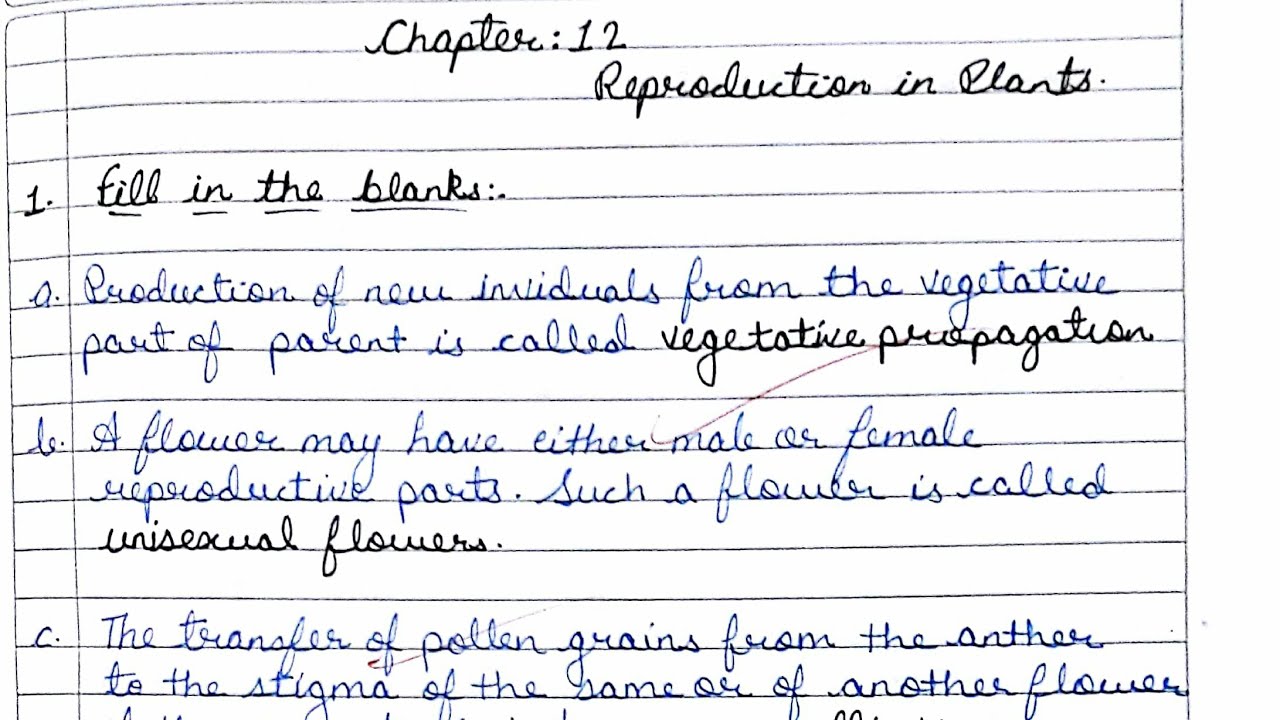 Chapter: 12
Reproduction in Plants.
1. fill in the blanks:-
a. Production of new inviduals from the vegetative
part of parent is called vegetative propagation
b. A flower may have either male or female
reproductive parts. Such a flower is called
unisexual flowers.
c. The transfer of pollen grains from the anther
to the stigma of the same or of another flower